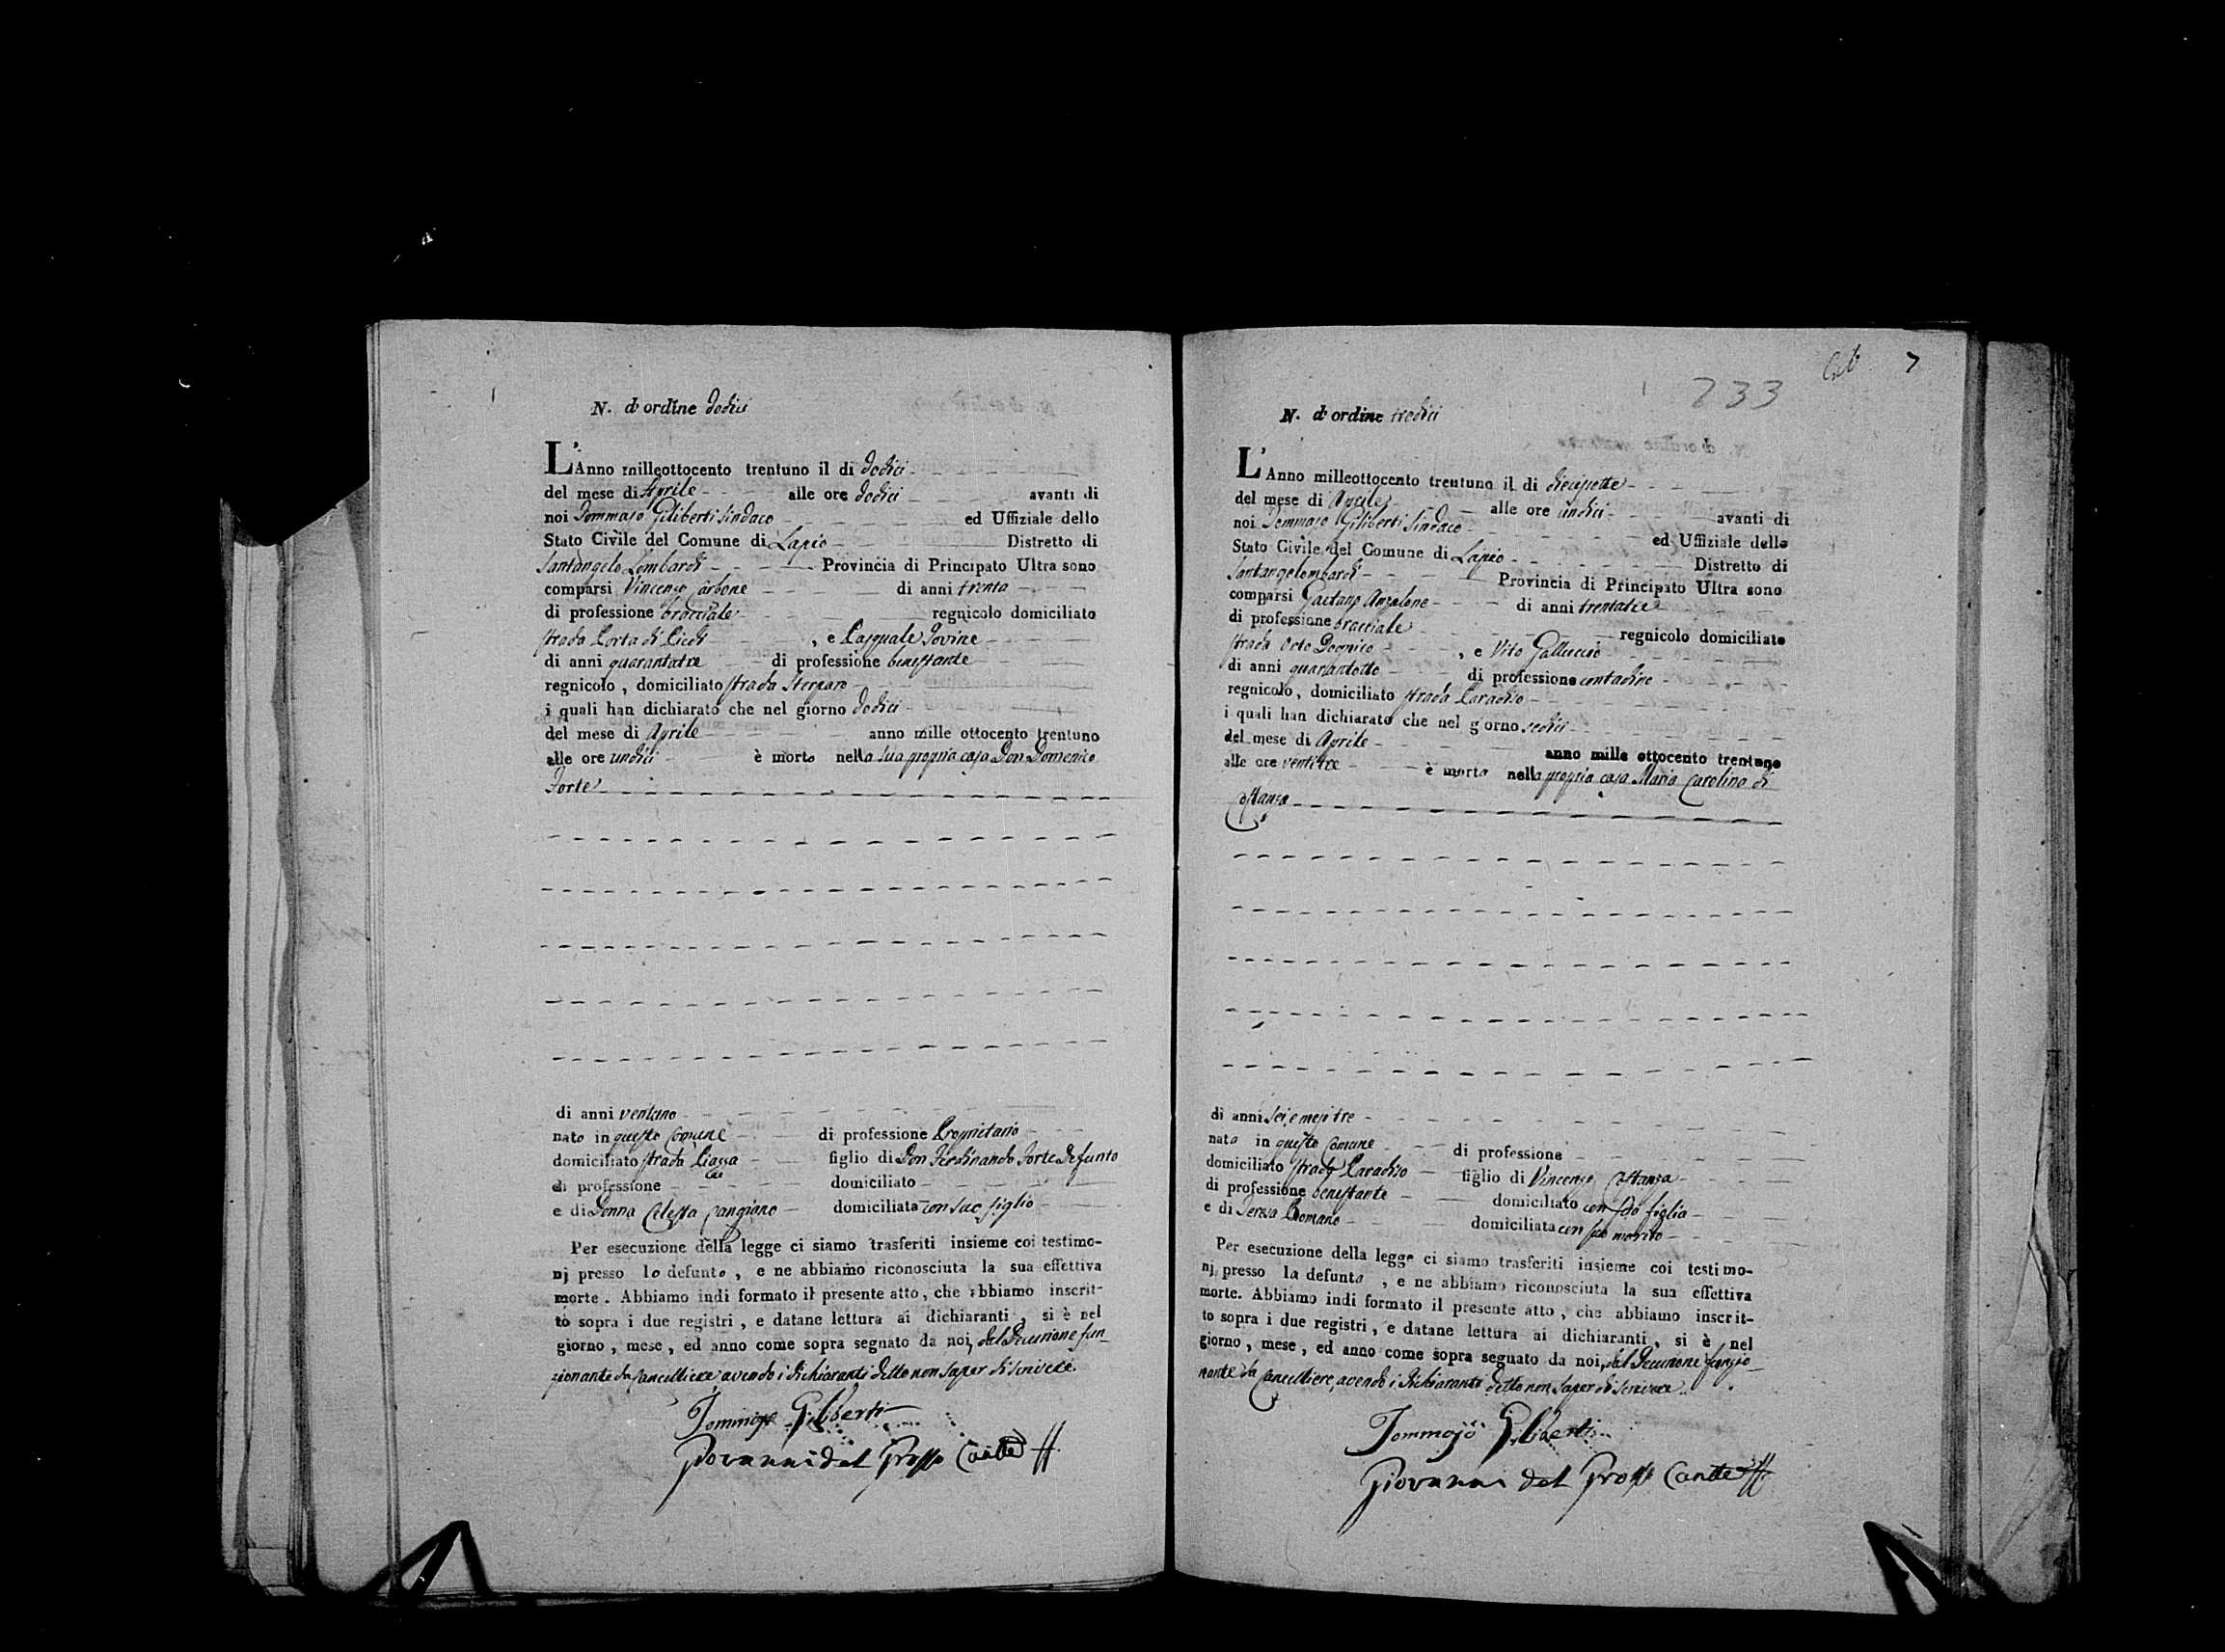 N. d'ordine dodici
L'Anno milleottocento trentuno il di dodici
del mese di Aprile alle ore dodici avanti di
noi Tommaso Giliberti Sindaco ed Uffiziale dello
Stato Civile del Comune di Lapio Distretto di
Santangelo Lombardi Provincia di Principato Ultra sono
comparsi Vincenzo Carbone di anni trenta
di professione bracciale regnicolo domiciliato
strada Porta di , e Pasquale Iovine
di anni quarantatre di professione benestante
regnicolo , domiciliato strada
i quali han dichiarato che nel giorno dodici
del mese di Aprile anno mille ottocento trentuno
alle ore undici è morto nella sua propria casa Don Domenico
Forte
di anni ventuno
nato in questo Comune di professione Proprietario
domiciliato strada Piazza figlio di Don Ferdinando Forte defunto
di professione domiciliato
e di Donna Celesta domiciliata con suo figlio
Per esecuzione della legge ci siamo trasferiti insieme coi testimo-
nj presso lo defunto , e ne abbiamo riconosciuta la sua effettiva
morte . Abbiamo indi formato il presente atto , che abbiamo inscrit-
to sopra i due registri , e datane lettura ai dichiaranti , si è nel
giorno , mese , ed anno come sopra segnato da noi, dal Decurione fun-
zionante da Cancelliere avendo i dichiaranti detto non saper di scrivere.
Tommaso Giliberti
Giovanni del Grosso
7
233
N. d'ordine tredici
L'Anno milleottocento trentuno il di diecisette
del mese di Aprile alle ore undici avanti di
noi Tommaso Giliberti Sindaco ed Uffiziale dello
Stato Civile del Comune di Lapio Distretto di
Santangelombardi Provincia di Principato Ultra sono
comparsi Gaetano Anzalone di anni trentatre
di professione bracciale regnicolo domiciliato
strada , e Vito Galluccio
di anni quarantotto di professione contadino
regnicolo , domiciliato strada Paradiso
i quali han dichiarato che nel giorno sedici
del mese di Aprile anno mille ottocento trentuno
alle ore ventitre è morta nella propria casa Maria Carolina di
Costanzo
di anni sei, e mesi tre
nata in questo Comune di professione
domiciliato strada Paradiso figlio di Vincenzo Costanza
di professione benestante domiciliato con sua figlia
e di Teresa Romano domiciliata con suo marito
Per esecuzione della legge ci siamo trasferiti insieme coi testimo-
nj presso la defunta , e ne abbiamo riconosciuta la sua effettiva
morte. Abbiamo indi formato il presente atto , che abbiamo inscrit-
to sopra i due registri , e datane lettura ai dichiaranti , si è nel
giorno , mese , ed anno come sopra segnato da noi, dal Decurione funzio-
nante da Cancelliere, avendo i dichiaranti detto non saper di scrivere.
Tommaso Giliberti
Giovanni del Grosso